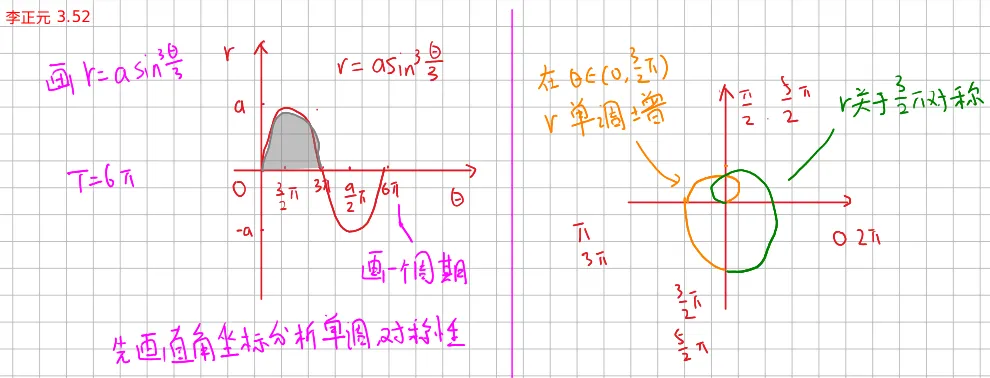 李正元 3.52
画 r=asin³θ/3
r
r=asin³θ/3
a
T=6π
O
3/2π
3π
9/2π
6π
θ
-a
画一个周期
先画直角坐标分析单调对称性
在 θ∈(0,3/2π)
r 单调增
π/2
5/2π
r关于3/2π对称
π
3π
0 2π
3/2π
5/2π